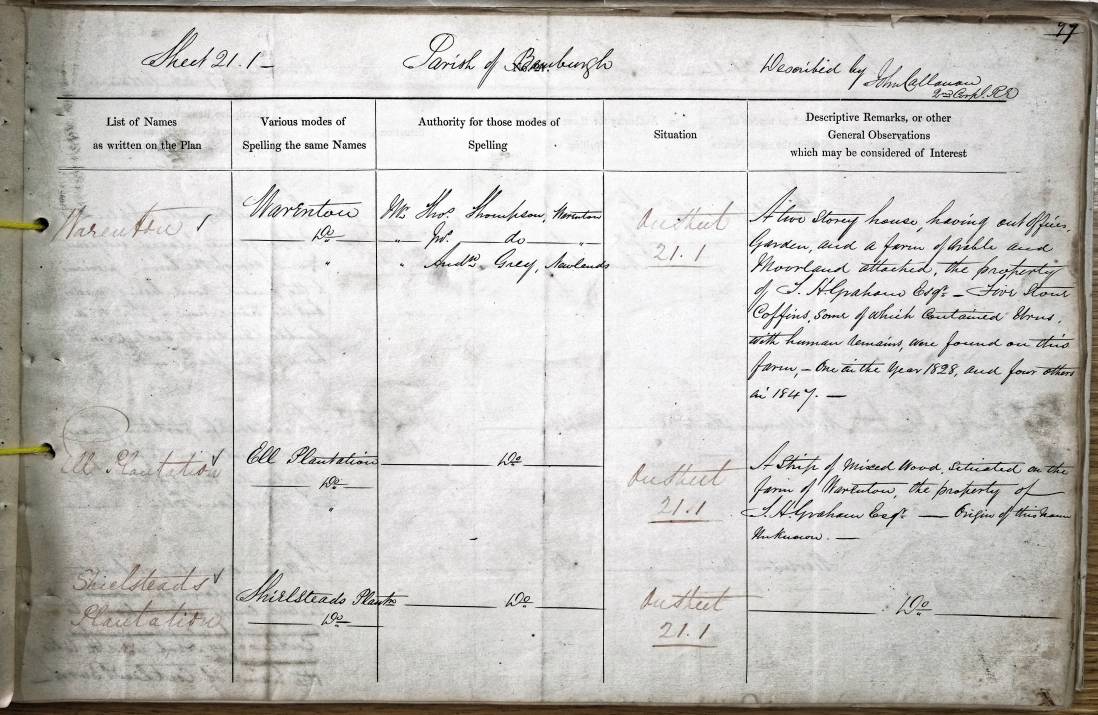 77
Sheet 21.1 -
Parish of Bamburgh
Described by John Callanan
2nd Corpl. R.E
List of Names
as written on the Plan
Various modes of
Spelling the same Names
Authority for those modes of
Spelling
Situation
Descriptive Remarks, or other
General Observations
which may be considered of Interest
Warenton
Warenton
Do
"
Mr. Thos. Thompson, Warenton
" Jno. do "
" Andw. Grey, Newlands
On Sheet
21.1
A two Storey house, having out offices,
Garden, and a farm of Arable and
Moorland attached, the property
of S. H. Graham Esqr. – Five Stone
Coffins, some of which Contained Urns,
with human remains, were found on this
farm, – One in the Year 1828, and four others
in 1847. —
Ell Plantation
Ell Plantation
Do
"
Do
On Sheet
21.1
A Strip of Mixed Wood, Situated on the
farm of Warenton, the property of
S. H. Graham Esqr. — Origin of this name
Unknown. —
Shielsteads
Plantation
Shielsteads Plantn
Do
Do
On Sheet
21.1
Do